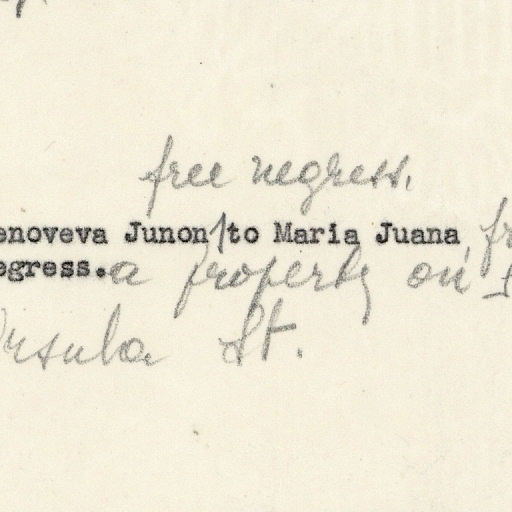 free negress,
enoveva Junon/to Maria Juana, fr
egress. a property on
Ursula St.